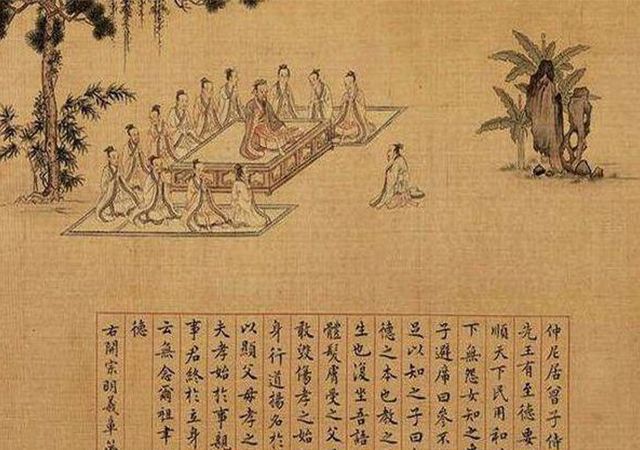 仲尼居曾子侍
先王有至德要
順天下民用和
下無怨女知之
子避席曰參不
足以知之子曰
德之本也教之
生也復坐吾語
體髮膚受之父
敢毀傷孝之始
身行道揚名於
以顯父母孝之
夫孝始於事親
事君終於立身
云無念爾祖聿
德
右開宗明義章